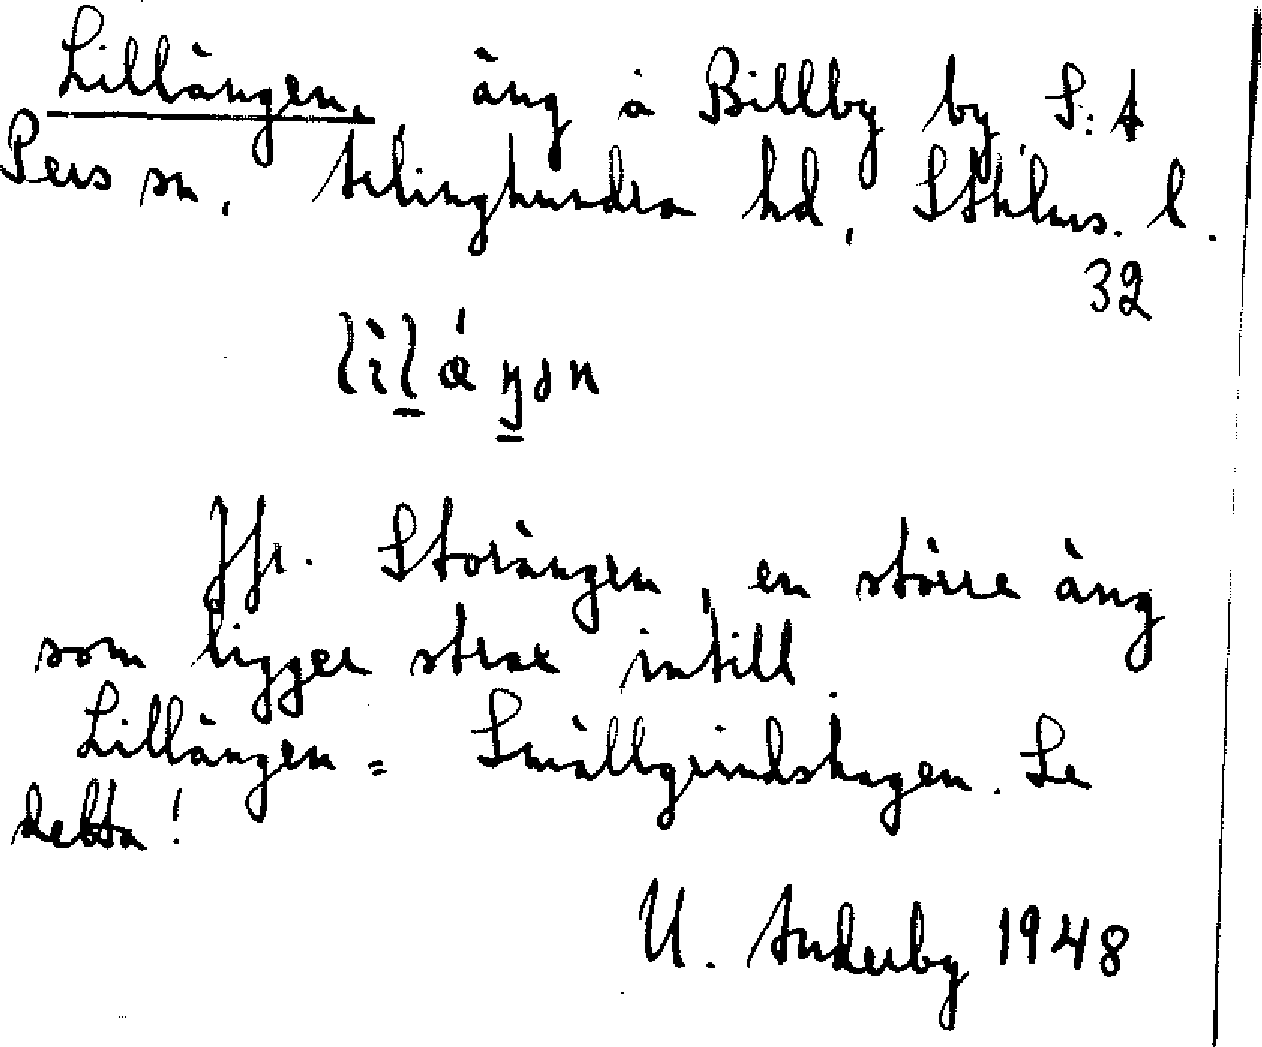 Lillängen, äng å Billby by, S:t
Pers sn, Ärlinghundra hd, Sthlms. l.
32
Jfr. Storängen, en större äng
som ligger strax intill.
Lillängen = Smällgrindshagen. Se
detta!
U. Anderby 1948